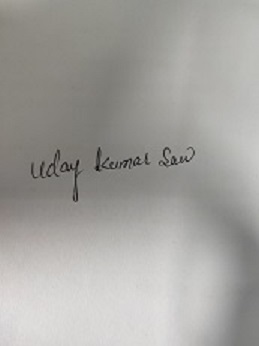 Uday Kumar Saw